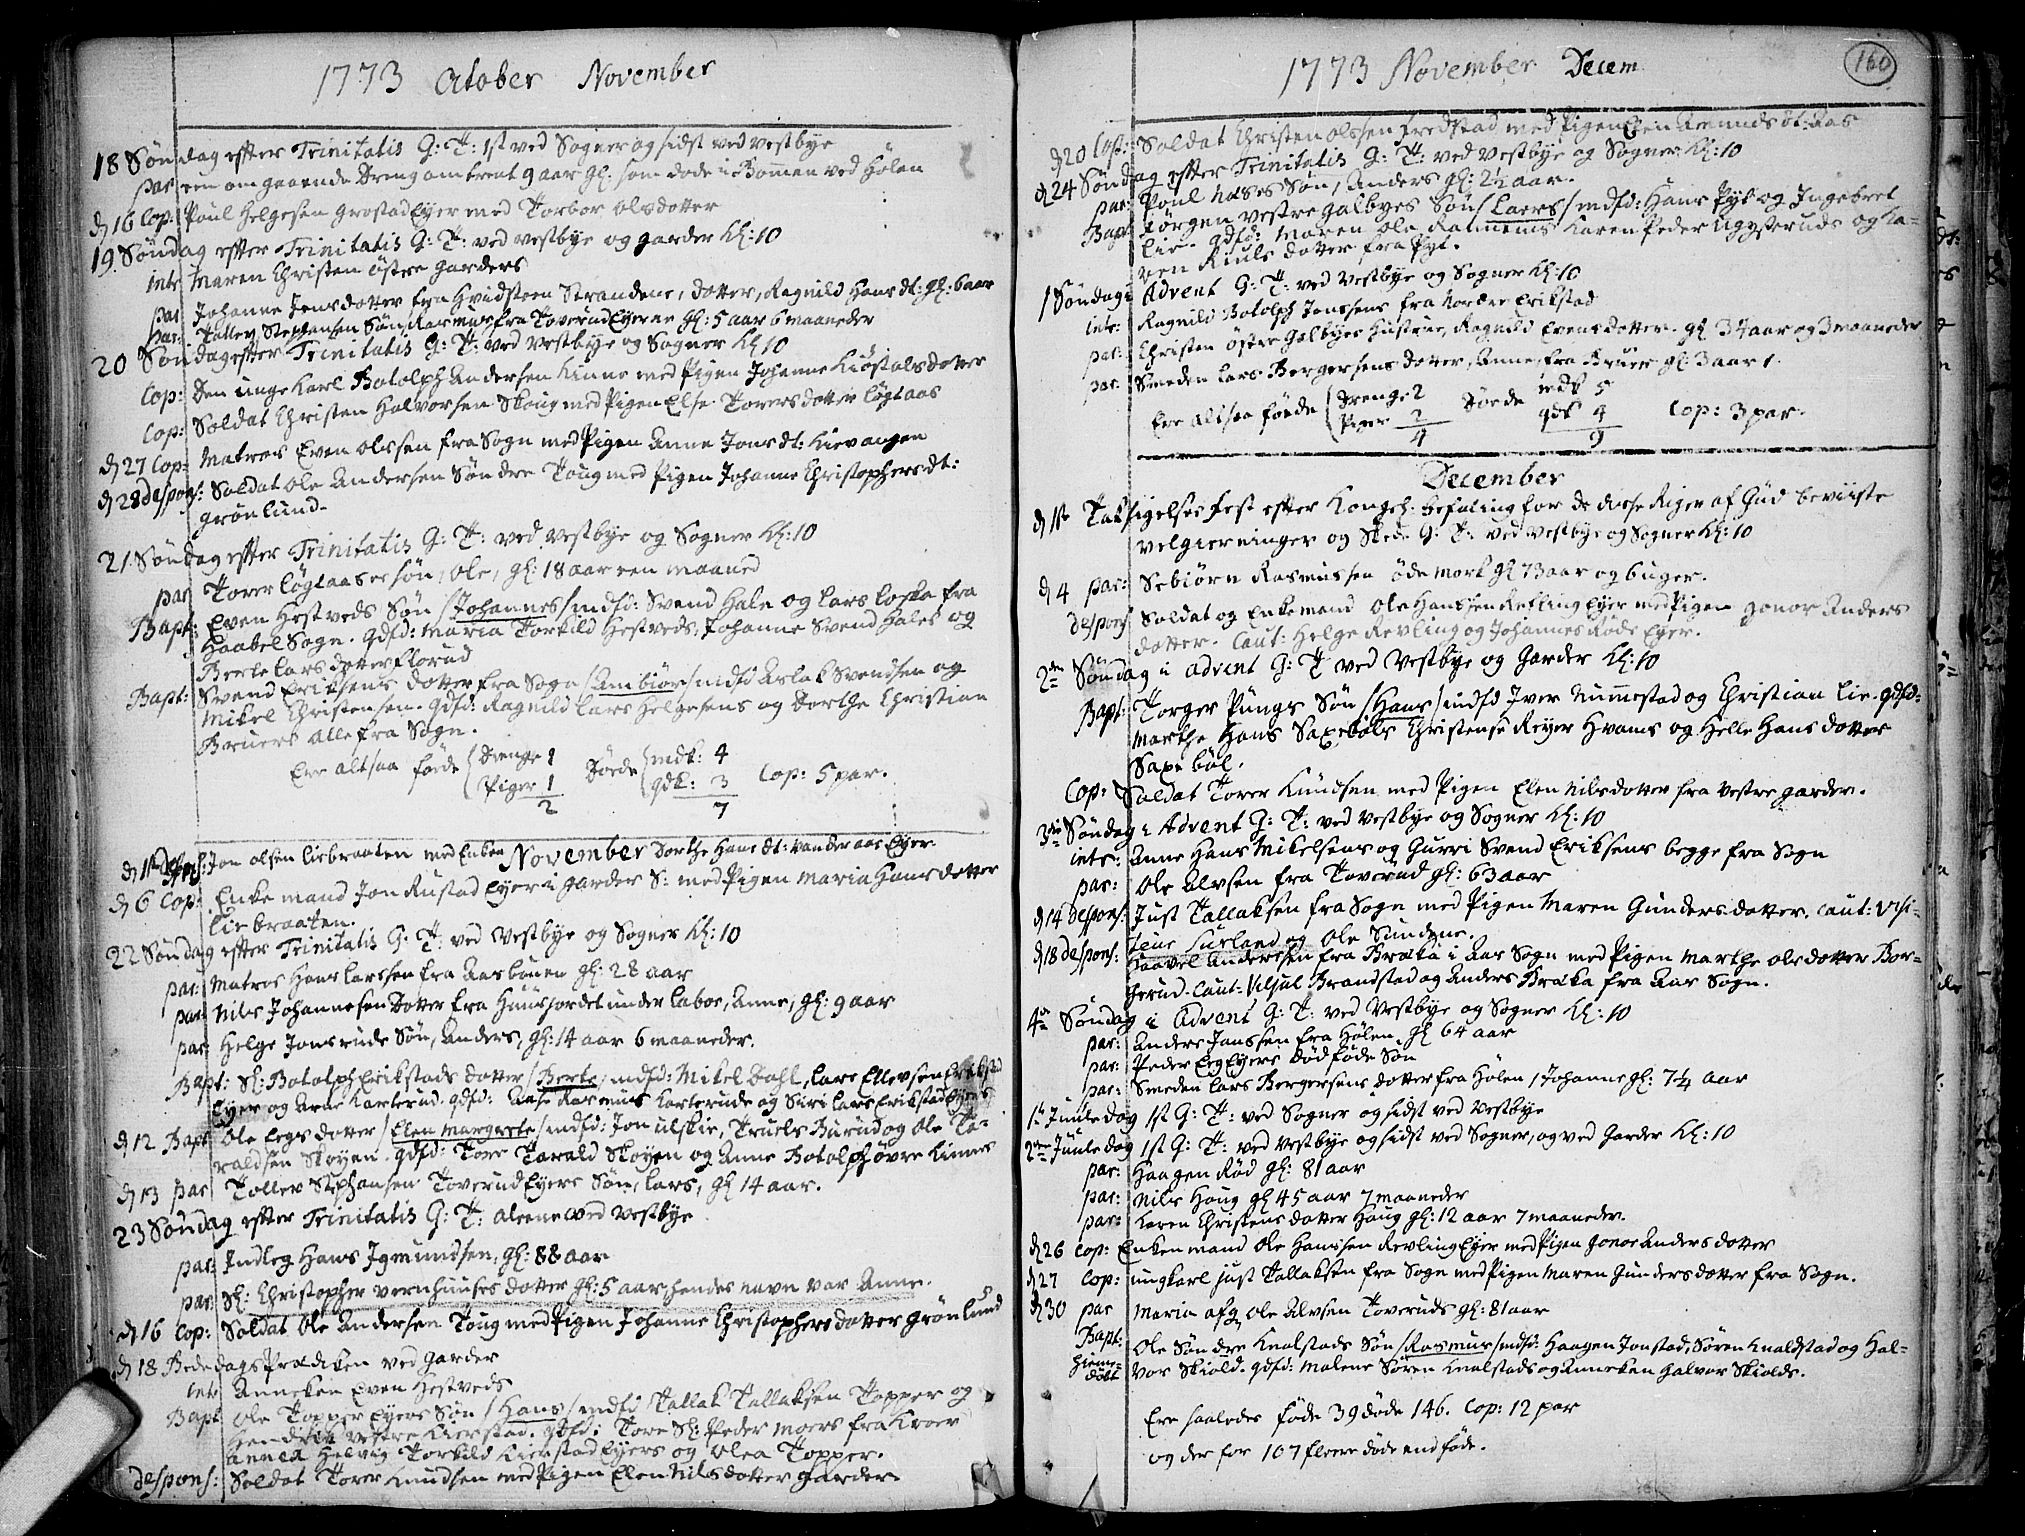 1773 October November
18 Søndag efter Trinitatis G: T: 1st ved Sogner og sidst ved Vestbye
par: een om gaaende Dreng omtrent 9 aar gl: som døde i Bommen ved Hølen
d 16 Cop: Poul Helgesen Grostad Eyer med Torbor Olsdotter
19 Søndag efter Trinitatis G: T: ved Vestbye og Garder Kl: 10
intr: Maren Christen Østre Garders
par: Johanne Jensdotter fra Hvidsteen Strandene, dotter, Ragnild Hans dt: gl: 6 aar
par: Tollev Stephansen Søn Rasmus fra Toverud Eyerne gl: 5 aar 6 maaneder
20 Søndag efter Trinitatis G: T: ved Vestbye og Sogner Kl 10
Cop: Den unge Karl Botolph Andersen Kinne med Pigen Johanne Kiøstolsdotter
Cop: Soldat Christen Halvorsen Skoug med Pigen Else Torersdotter Løgtaas
d 27 Cop: Matros Even Olssen fra Sogn med Pigen Anne Jonsdt: Kievangen
d 28 despons: Soldat Ole Andersen Søndre Toug med Pigen Johanne Christophersdt:
Grønlund.
21 Søndag efter Trinitatis G: T: ved Vestbye og Sogner Kl: 10
par: Torer Løgtaases Søn, Ole, gl: 18 aar een maaned
Bapt: Even Hestveds Søn /Johannes/ mdfd: Svend Hale og Lars Loska fra
Haabel Sogn. Qdfd: Maria Torkild Hestveds, Johanne Svend Hales og
Berte Larsdotter Florud
Bapt: Svend Eriksens dotter fra Sogn /Anbiør/ mdfd Aslak Svendsen og
Mikel Christensen. Qdfd: Ragnild Lars Helgesens og Dorthe Christian
Bruers alle fra Sogn.
Ere altsaa føede Drenge 1 Døede mdk: 4
Piger 1 qdk: 3 Cop: 5 par.
2 7
November
d 1ste despons: Jon Olsen Liebraaten med Enken Dorthe Hans dt: Vanderaas Eyer
d 6 Cop: Enkemand Jon Rustad Eyer i Garder S: med Pigen Maria Hansdotter
Liebraaten.
22 Søndag efter Trinitatis G: T: ved Vestbye og Sogner Kl: 10
par: Matros Hans Larssen fra Aasbunen gl: 28 aar
par: Nils Johannesen Dotter fra Huusjordet under Laboe, Anne, gl: 9 aar
par: Helge Jonsrude Søn, Anders, gl: 14 aar 6 maaneder.
Bapt: Sl: Botolph Erikstads dotter /Berte/ mdfd: Mikel Dahl, Lars Ellevsen Erikstad
Eyer og Arne Karterud. qdfd: Aase Rasmus Karterude og Siri Lars Erikstad Eyers
d 12 Bapt: Ole Eegs dotter /Elen Margrete/ mdfd: Jon Ulskie, Truels Burud og Ole To-
raldsen Skøyen. Qdfd: Tore Torald Skøyen og Anne Botolph øvre Kinnes
d 13 par: Tollev Stephansen Toverud Eyers Søn, Lars, gl 14 aar.
23 Søndag efter Trinitatis G: T: alene ved Vestbye
par: Indleg Hans Igmundsen, gl: 88 aar
par: Sl: Christopher Vernhuuses dotter gl: 5 aar, hendes navn var Anne.
d 16 Cop: Soldat Ole Andersen Toug med Pigen Johanne Christophersdotter Grønlund
d 18 Bededags Prædiken ved Garder
intr: Anneken Even Hestveds
Bapt: Ole Topper Eyers Søn /Hans/ mdfd Tallak Tallaksen Topper og
Hendrik Vestre Kierstad. Qdfd: Tore Sl: Peder Moers fra Kroer
Annea Helvig Torkild Kierstad Eyers og Olea Topper.
despons: Soldat Torer Knudsen med Pigen Elen Nilsdotter Garder
1773 November Decem
160
d 20 Cop: Soldat Christen Olssen Fredstad med Pigen Elen Amundsdt: Aas
d 24 Søndag efter Trinitatis G: T: ved Vestbye og Sogner Kl: 10
par: Poul Næses Søn, Anders gl: 2½ aar.
Bapt: Jørgen Vestre Galbyes Søn /Laers/ mdfd: Hans Pyt og Ingebret
Lie. Qdfd: Maren Ole Rammems Karen Peder Ugysterude og Ka-
ren Riuls dotter fra Pyt.
1 Søndag i Advent G: T: ved Vestbye og Sogner Kl: 10
intr: Ragnild Botolph Jonssens fra Nordre Erikstad
par: Christen Østre Galbyes Hustrue, Ragnild Evensdotter. gl 34 aar og 3 maaneder
par: Smeden Lars Bergersens dotter, Anne, fra Bruer gl: 3 aar.
Ere altsaa føede Drenge 2 Døede mdk 5
Piger 2 qdk 4 Cop: 3 par.
4 9
December
d 1ste Taksigelses fest efter Kongel: befaling for de disse Riger af Gud beviiste
velgierninger og Skede G: T: ved Vestbye og Sogner Kl: 10
d 4 par: Sebiörn Rasmussen Ødemork gl 73 aar og 6 uger.
despons: Soldat og Enkemand Ole Hanssen Refling Eyer med Pigen Gonor Anders
dotter. Caut: Helge Revling og Johannes Røde Eyer.
2den Søndag i Advent G: T ved Vestbye og Garder Kl: 10
Bapt: Torger Pungs Søn /Hans/ mdfd Iver Nummestad og Christian Lie. Qdfd:
Marthe Hans Saxebøls Christense Reyer Hvams og Helle Hansdotter
Saxebøl.
Cop: Soldat Torer Knudsen med Pigen Elen Nilsdotter fra Vestre Garder.
3die Søndag i Advent G: T: ved Vestbye og Sogner Kl: 10
intr: Anne Hans Mikelsens og Gurri Svend Eriksens begge fra Sogn
par: Ole Alvsen fra Toverud gl: 63 aar
d 14 despons: Just Tallaksen fra Sogn med Pigen Maren Gundersdotter. Caut: Visi-
teur Lurland og Ole Sundene.
d 18 despons: Haavel Andersen fra Braka i Aas Sogn med Pigen Marthe Olsdotter Bor-
gerud. Caut: Viljul Brandstad og Anders Braka fra Aas Sogn.
4de Søndag i Advent G: T: ved Vestbye og Sogner Kl: 10
par: Anders Janssen fra Hølen gl 64 aar
par: Peder Eeg Eyers død føde Søn
par: Smeden Lars Bergersens dotter fra Hølen /Johanne gl: 7¼ aar
1ste Juule dag 1st G: T: ved Sogner og sidst ved Vestbye
2den Juule dag 1st G: T: ved Vestbye og sidst ved Sogner, og ved Garder Kl: 10
par: Haagen Rød gl: 81 aar
par: Nils Haug gl 45 aar 7 maaneder
par: Karen Christens dotter Haug gl: 12 aar 7 maaneder.
d 26 Cop: Enkemand Ole Hanssen Revling Eyer med Pigen Gonor Anders dotter
d 27 Cop: ungkarl Just Tallaksen fra Sogn med Pigen Maren Gunders dotter fra Sogn.
d 30 par Maria afg Ole Alvsen Toveruds gl: 81 aar
Bapt: Ole Søndre Knalstads Søn /Rasmus/ mdfd: Haagen Jonstad, Søren Knalstad og Hal-
hiemedøbt vor Skiold. Qdfd: Malene Søren Knalstads og Anneken Halvor Skiolds.
Ere saaledes føde 39 døde 146. Cop: 12 par
og der for 107 fleere døde end føde.